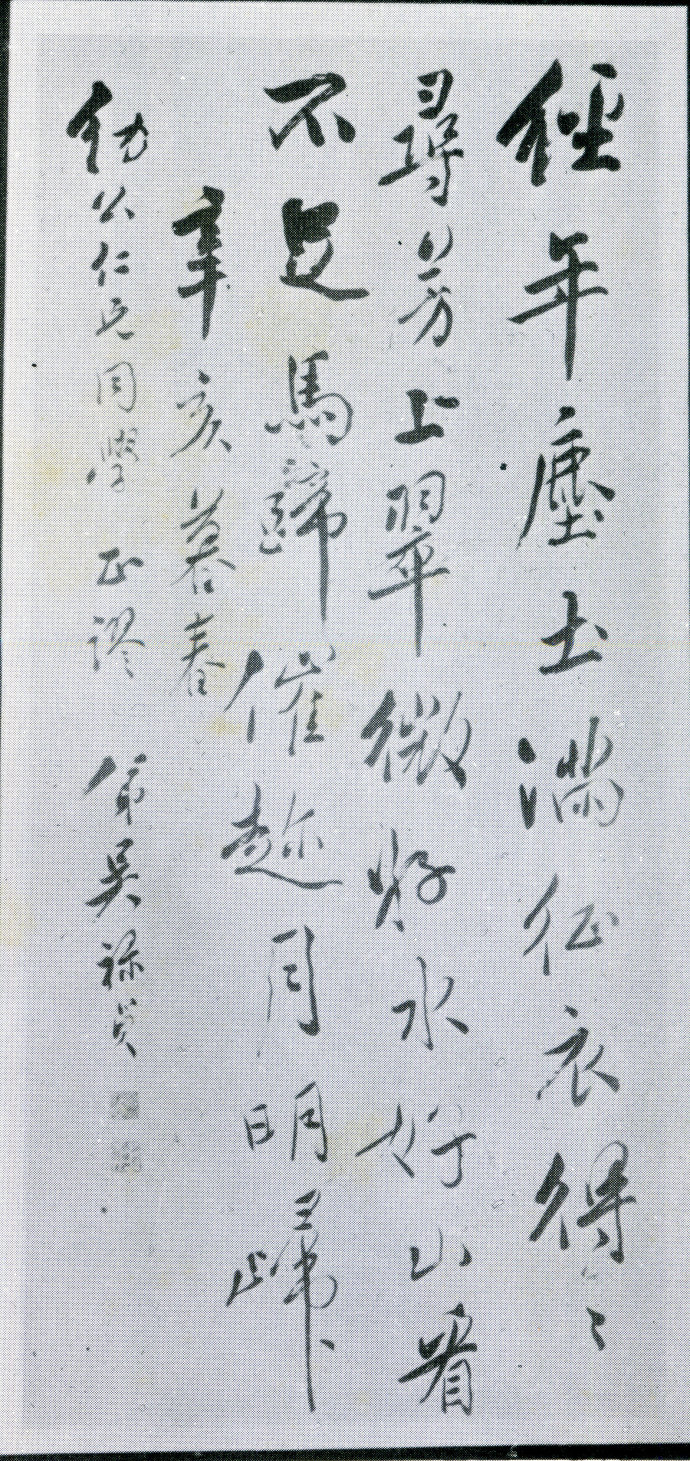 經年塵土滿征衣得〻
尋芳上翠微好水好山看
不足馬蹄催趂月明歸
辛亥暮春
公仁兄同學正謬 弟吳祿貞